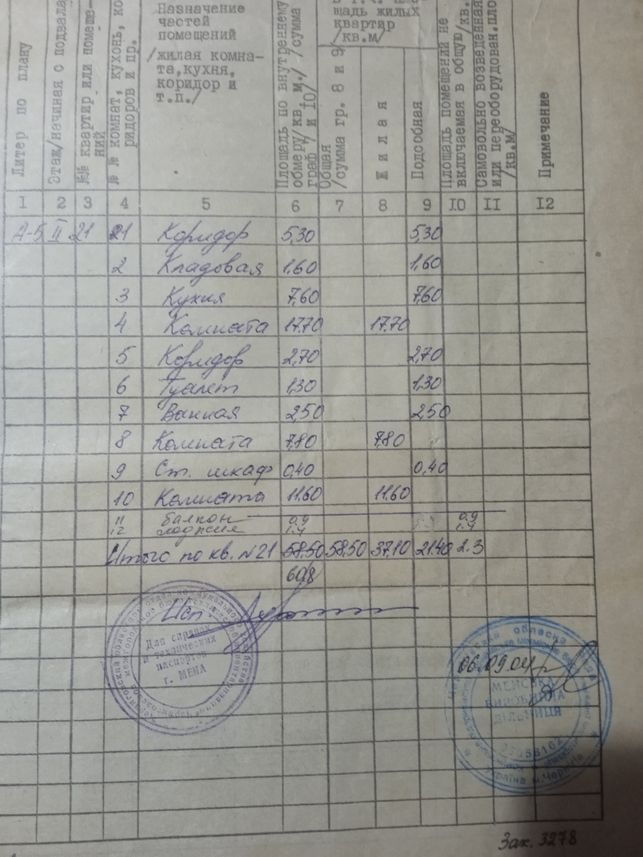 Литер по плану
Этаж/начиная с подвала
№№ квартир или помеще-
ний
№ № комнат, кухонь, ко-
ридоров и пр.
Назначение
частей
помещений
/жилая комна-
та,кухня,
коридор и
т.п./
Площадь по внутреннему
обмеру/кв.м./ /сумма
граф 7 и 10/
щадь жилых
квартир
/кв.м/
Общая
/сумма гр. 8 и 9
Жилая
Подсобная
Площадь помещений не
включаемая в общую/кв.
Самовольно возведенная
или переоборудован.пло
/кв.м/
Примечание
1 2 3 4 5 6 7 8 9 10 11 12
А-5 II 21 1 Коридор 5,30 5,30
2 Кладовая 1,60 1,60
3 Кухня 7,60 7,60
4 Комната 17.70 17.70
5 Коридор 2,70 2,70
6 Туалет 1,30 1,30
7 Ванная 2,50 2,50
8 Комната 7,80 7,80
9 Ст. шкаф 0,40 0,40
10 Комната 11.60 11.60
11 балкон 0,9 0,9
12 лоджия 1.4 1.4
Итого по кв. №21 58.50 58,50 37,10 21.40 2.3
60,8
Исп.
Для справок
и технических
паспортов
г. МЕНА
06.09.04р
МЕНСЬКА
ВИРОБНИЧА
ДІЛЬНИЦЯ
Україна м.Чернігів
Зак. 3278